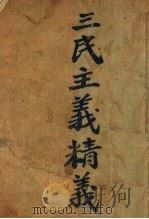 三民主義精義